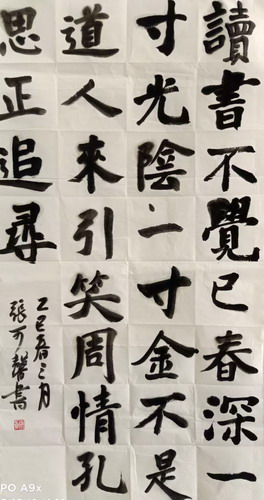 讀書不覺已春深一
寸光陰一寸金不是
道人來引笑周情孔
思正追尋
乙巳春三月
張可馨書
PO A9x